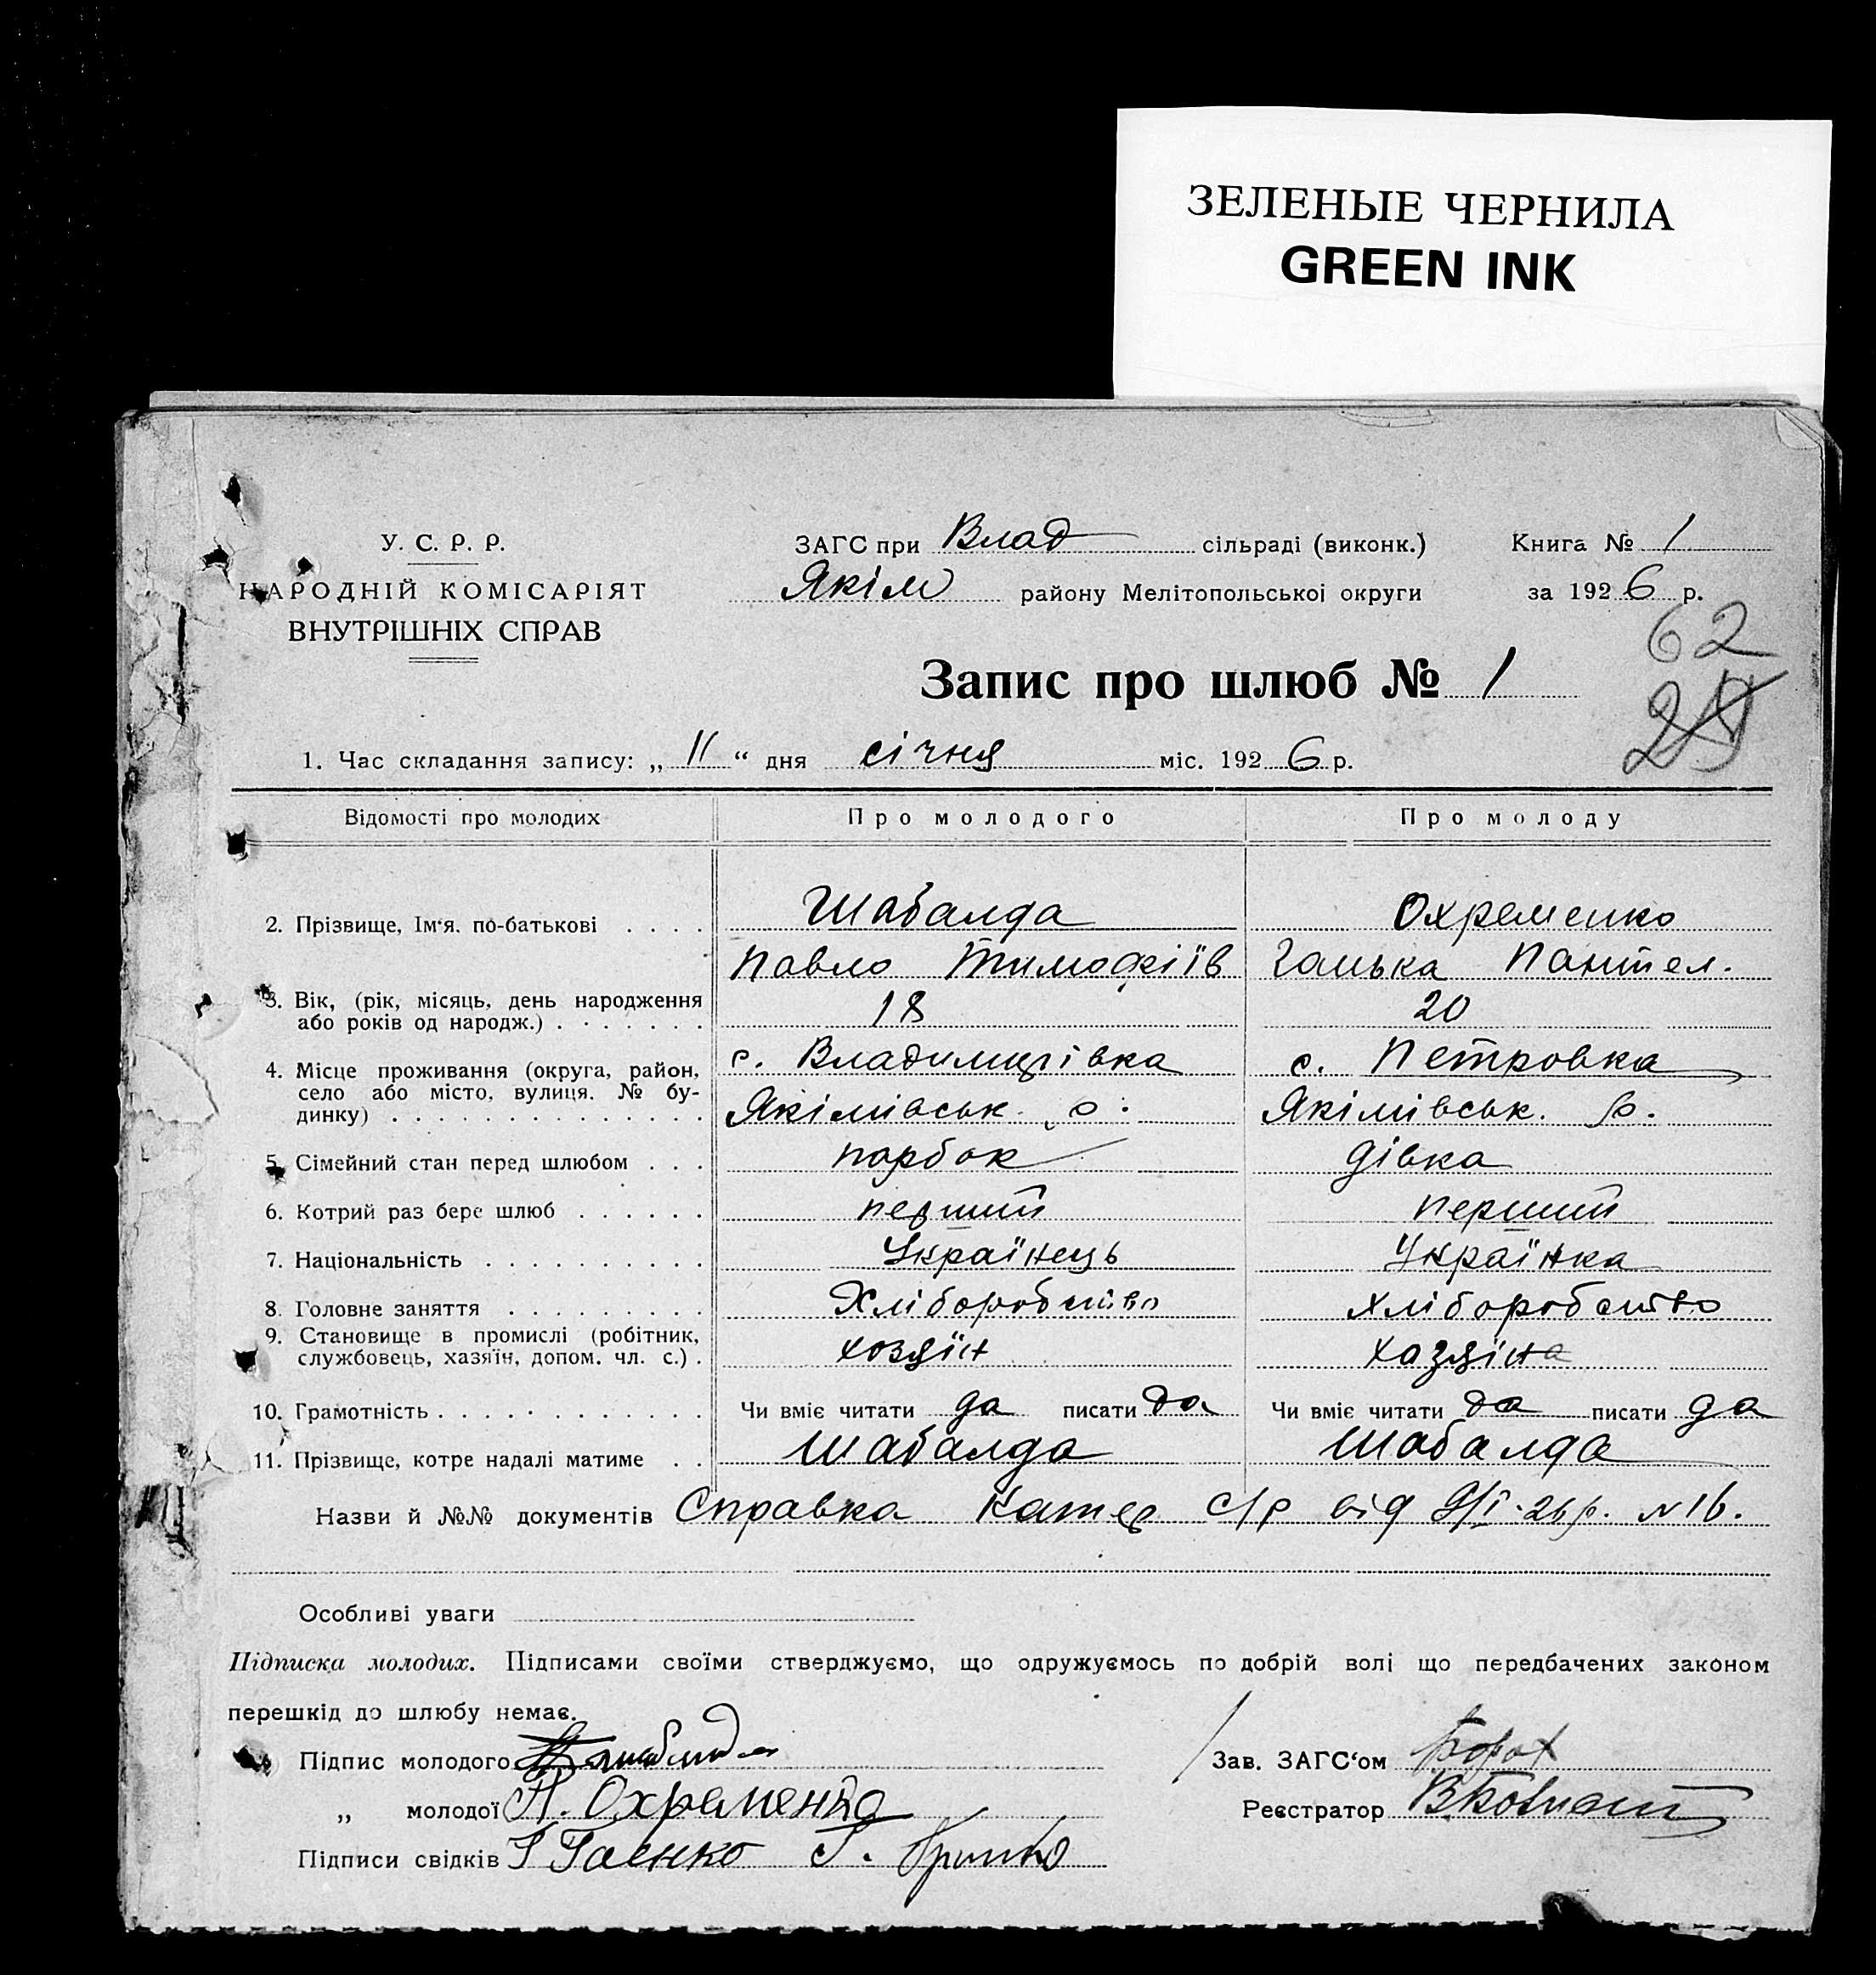 ЗЕЛЕНЫЕ ЧЕРНИЛА
GREEN INK
У. С. Р. Р.
НАРОДНІЙ КОМІСАРІЯТ
ВНУТРІШНІХ СПРАВ
ЗАГС при Влад сільраді (виконк.)
Якім району Мелітопольської округи
Книга № 1
за 1926 р.
62
Запис про шлюб № 1
1. Час складання запису: „ 11 “ дня січня міс. 1926 р.
Відомості про молодих Про молодого Про молоду
2. Прізвище, Ім‘я. по-батькові . . . . Шабалда Охременко
Павло Тимофіїв Ганька Пантел.
3. Вік, (рік, місяць, день народження 18 20
або років од народж.) . . . . . . .
4. Місце проживання (округа, район, с. Владимирівка с. Петровка
село або місто, вулиця. № бу-
динку) . . . . . . . . . . . . . . Якімівськ. р. Якімівськ. р.
5. Сімейний стан перед шлюбом . . . парбок дівка
6. Котрий раз бере шлюб . . . . . . перший перший
7. Національність . . . . . . . . . . Українець Українка
8. Головне заняття . . . . . . . . . Хліборобство хліборобство
9. Становище в промислі (робітник, хозяїн хазяїна
службовець, хазяїн, допом. чл. с.) .
10. Грамотність . . . . . . . . . . . . Чи вміє читати да писати да Чи вміє читати да писати да
11. Прізвище, котре надалі матиме . . Шабалда Шабалда
Назви й №№ документів Справка Катер с/р від 9/I-26 р. № 16.
Особливі уваги
Підписка молодих. Підписами своїми стверджуємо, що одружуємось по добрій волі що передбачених законом
перешкід до шлюбу немає.
Підпис молодого
Зав. ЗАГС‘ом
„ молодої Охременко
Реєстратор
Підписи свідків Гаєнко